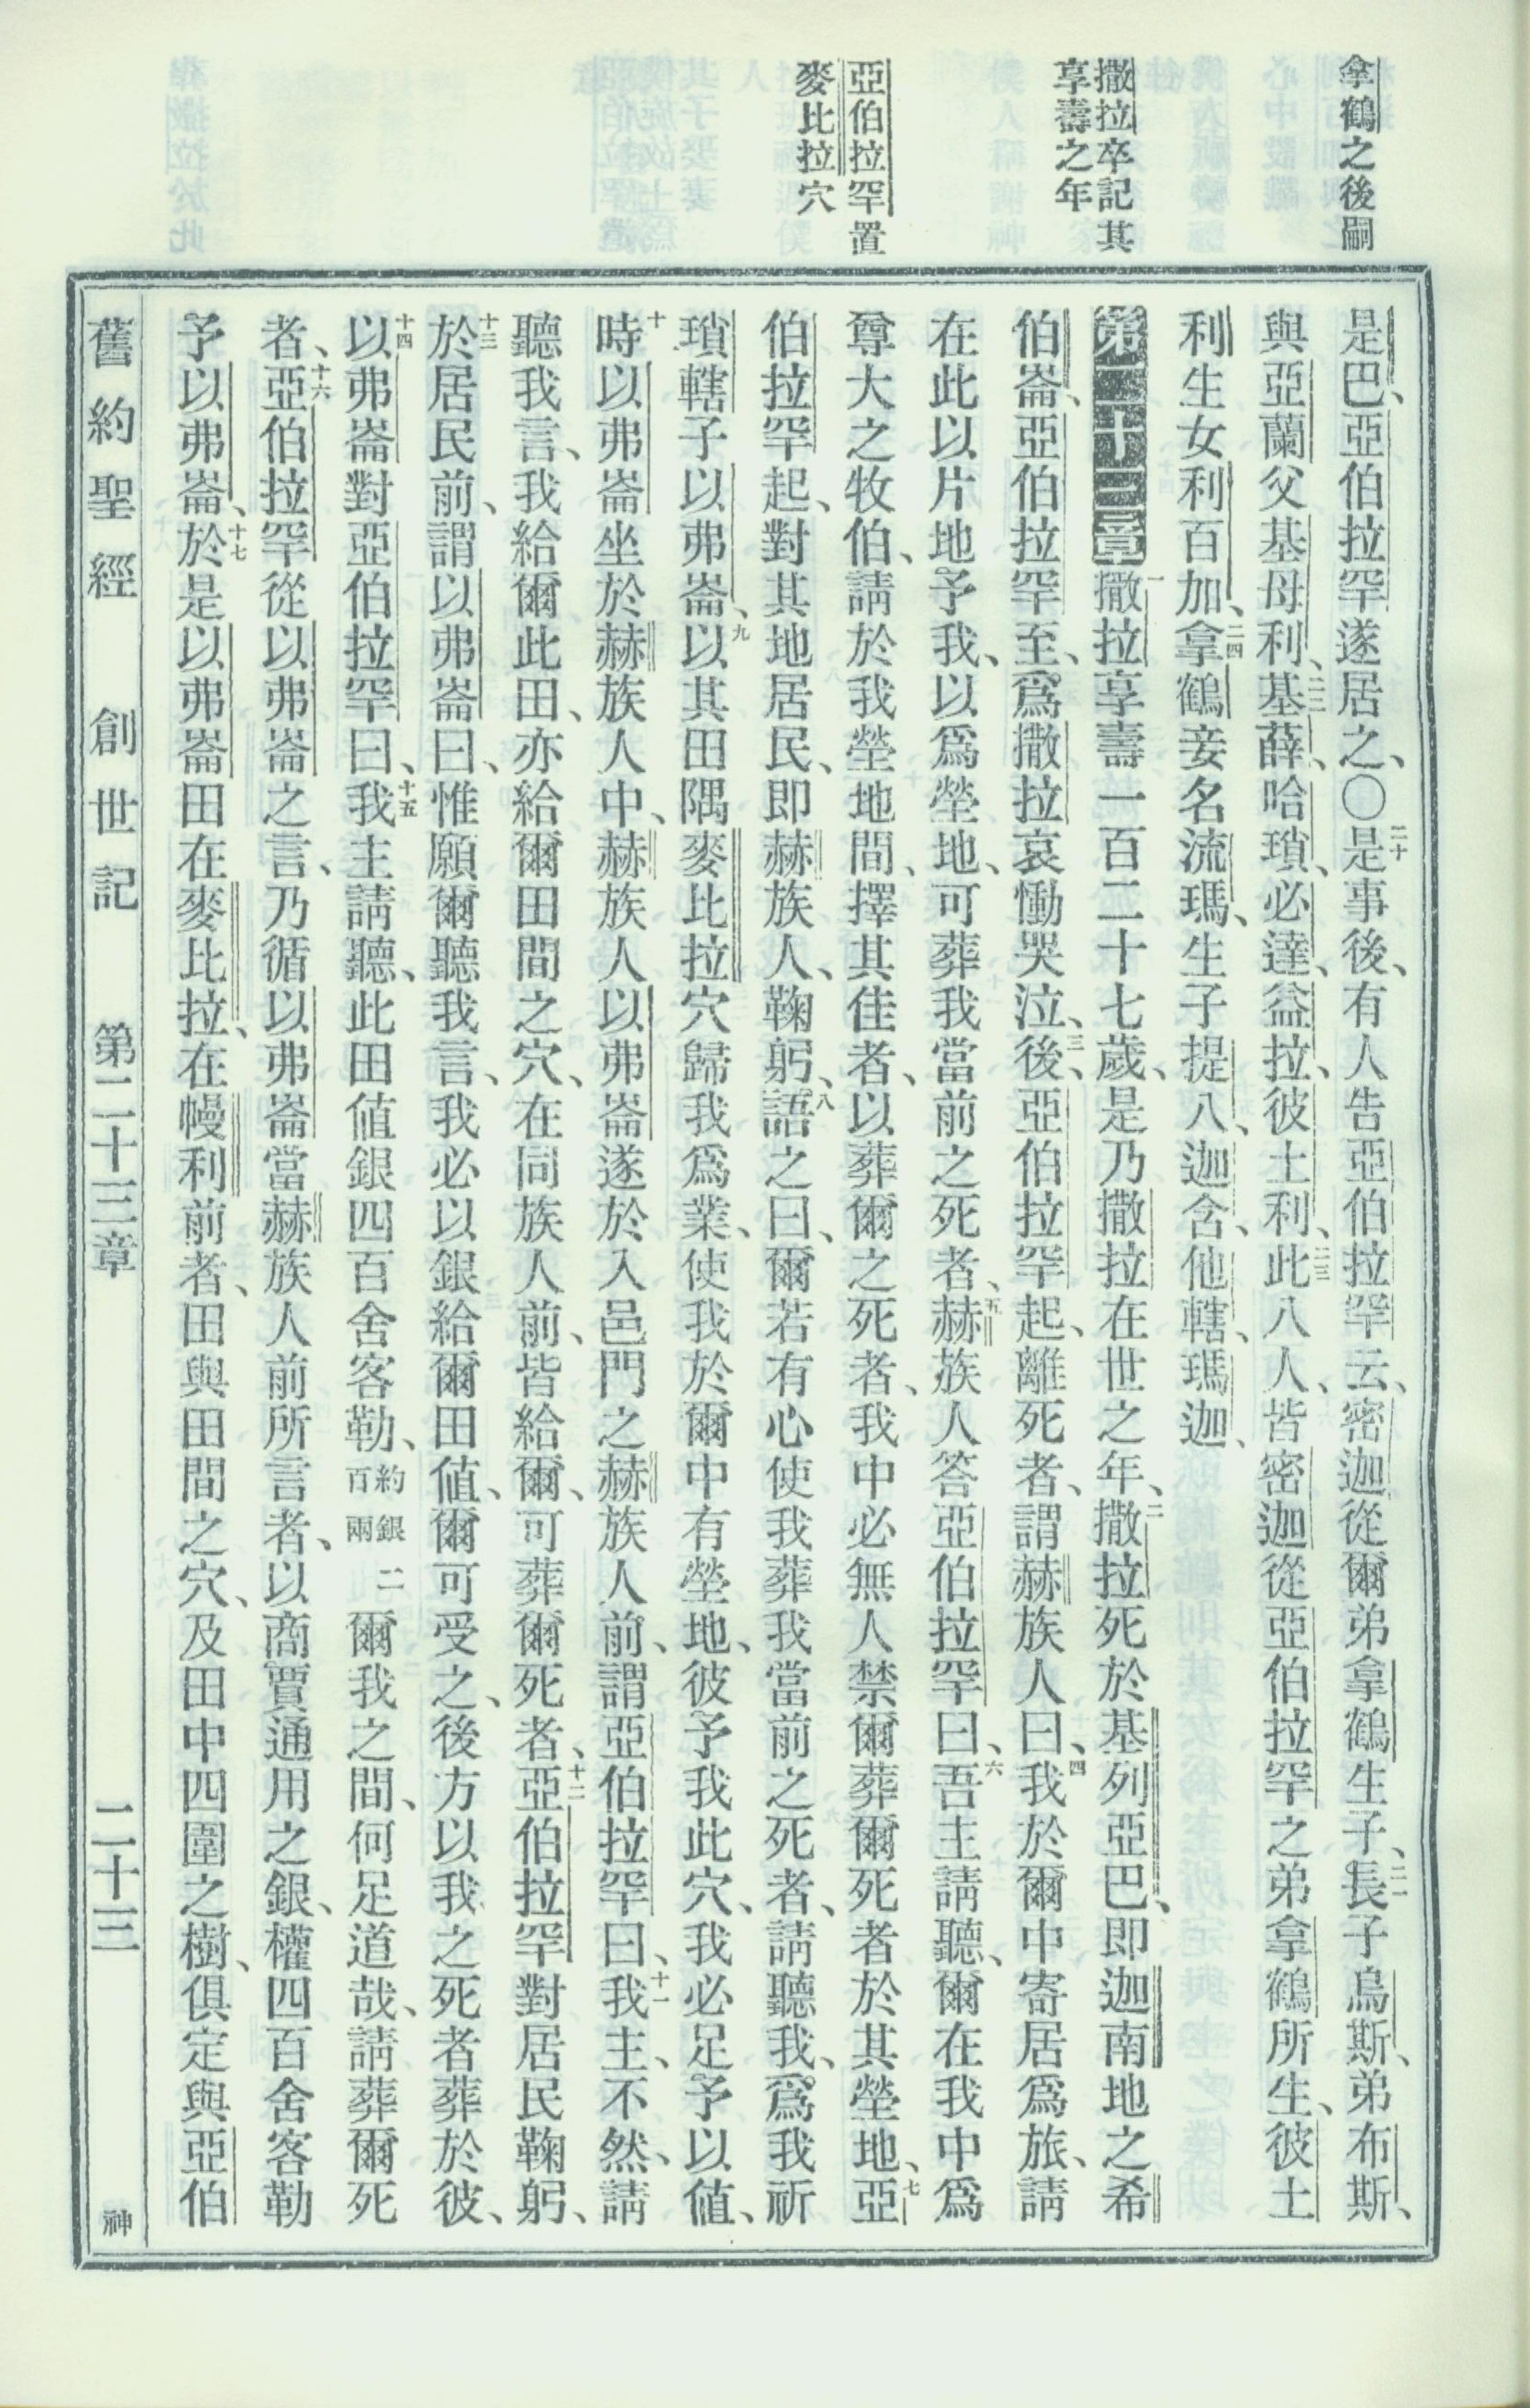 拿鶴之後嗣
撒拉卒記其
享壽之年
亞伯拉罕置
麥比拉穴
是巴、亞伯拉罕遂居之、〇二十是事後、有人告亞伯拉罕云、密迦從爾弟拿鶴生子、二一長子烏斯、弟布斯、
與亞蘭父基母利、二二基薛、哈瑣、必達、益拉、彼土利、二三此八人、皆密迦從亞伯拉罕之弟拿鶴所生、彼土
利生女利百加、二四拿鶴妾名流瑪、生子提八、迦含、他轄、瑪迦、
第二十三章一撒拉享壽一百二十七歲、是乃撒拉在世之年、二撒拉死於基列亞巴、即迦南地之希
伯崙、亞伯拉罕至、爲撒拉哀慟哭泣、三後、亞伯拉罕起、離死者、謂赫族人曰、四我於爾中寄居爲旅、請
在此以片地予我、以爲塋地、可葬我當前之死者、五赫族人答亞伯拉罕曰、六吾主請聽、爾在我中爲
尊大之牧伯、請於我塋地間、擇其佳者、以葬爾之死者、我中必無人禁爾葬爾死者於其塋地、七亞
伯拉罕起、對其地居民、即赫族人、鞠躬、八語之曰、爾若有心使我葬我當前之死者、請聽我、爲我祈
瑣轄子以弗崙、九以其田隅麥比拉穴歸我爲業、使我於爾中有塋地、彼予我此穴、我必足予以值、
十時以弗崙坐於赫族人中、赫族人以弗崙遂於入邑門之赫族人前、謂亞伯拉罕曰、十一我主、不然、請
聽我言、我給爾此田、亦給爾田間之穴、在同族人前、皆給爾、可葬爾死者、十二亞伯拉罕對居民鞠躬、
十三於居民前、謂以弗崙曰、惟願爾聽我言、我必以銀給爾田值、爾可受之、後方以我之死者葬於彼、
十四以弗崙對亞伯拉罕曰、十五我主請聽、此田值銀四百舍客勒、約銀二百兩爾我之間、何足道哉、請葬爾死
者、十六亞伯拉罕從以弗崙之言、乃循以弗崙當赫族人前所言者、以商賈通用之銀、權四百舍客勒
予以弗崙、十七於是以弗崙田在麥比拉、在幔利前者、田與田間之穴、及田中四圍之樹、俱定與亞伯
舊約聖經　創世記　第二十三章　二十三　神